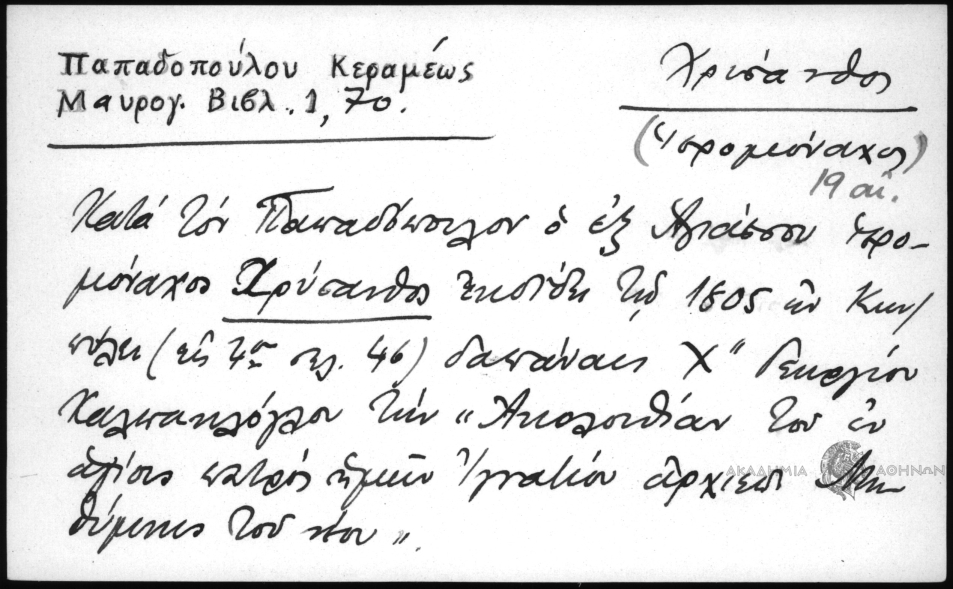 Παπαδοπούλου Κεραμέως
Μαυρογ. Βιβλ. 1, 70.
Χρύσανθος
(Ἱερομόναχος)
19 αἰ.
Κατά τόν Παπαδόπουλον ὁ ἐξ Ἀγιάσσου ἱερο-
μόναχος Χρύσανθος ἐκδίδει τῷ 1805 ἐν Κων/
πόλει (εἰς 4ον σελ. 46) δαπάναις Χ" Γεωργίου
Χαλπακλόγλου τήν "Ἀκολουθίαν τοῦ ἐν
ἁγίοις πατρός ἡμῶν Ἰγνατίου ἀρχιεπ Μη-
θύμνης τοῦ νέου".
ΑΚΑΔΗΜΙΑ ΑΘΗΝΩΝ